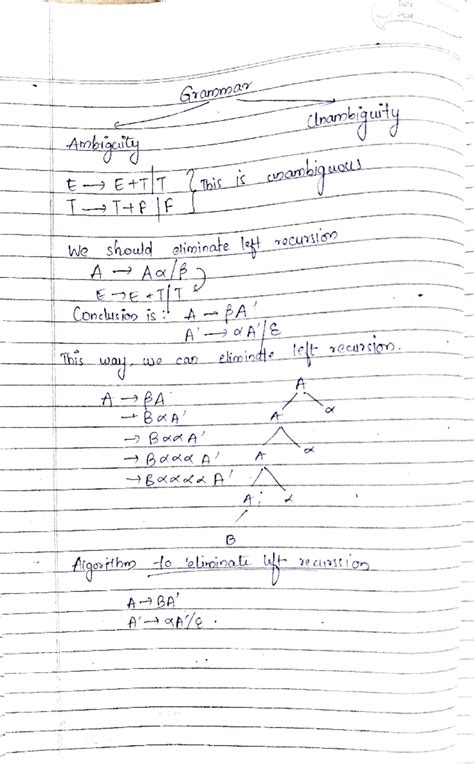 Grammar
Ambiguity
Unambiguity
E → E+T | T
T → T+F | F
} This is unambiguous
We should eliminate left recursion
A → Aα/β
E → E+T/T
Conclusion is :- A → βA'
A' → αA'/ε
This way, we can eliminate left recursion.
A → βA'
→ BαA'
→ BααA'
→ BαααA'
→ BααααA'
A
A α
A α
A; α
B
Algorithm to eliminate left recursion
A → BA'
A' → αA'/ε.